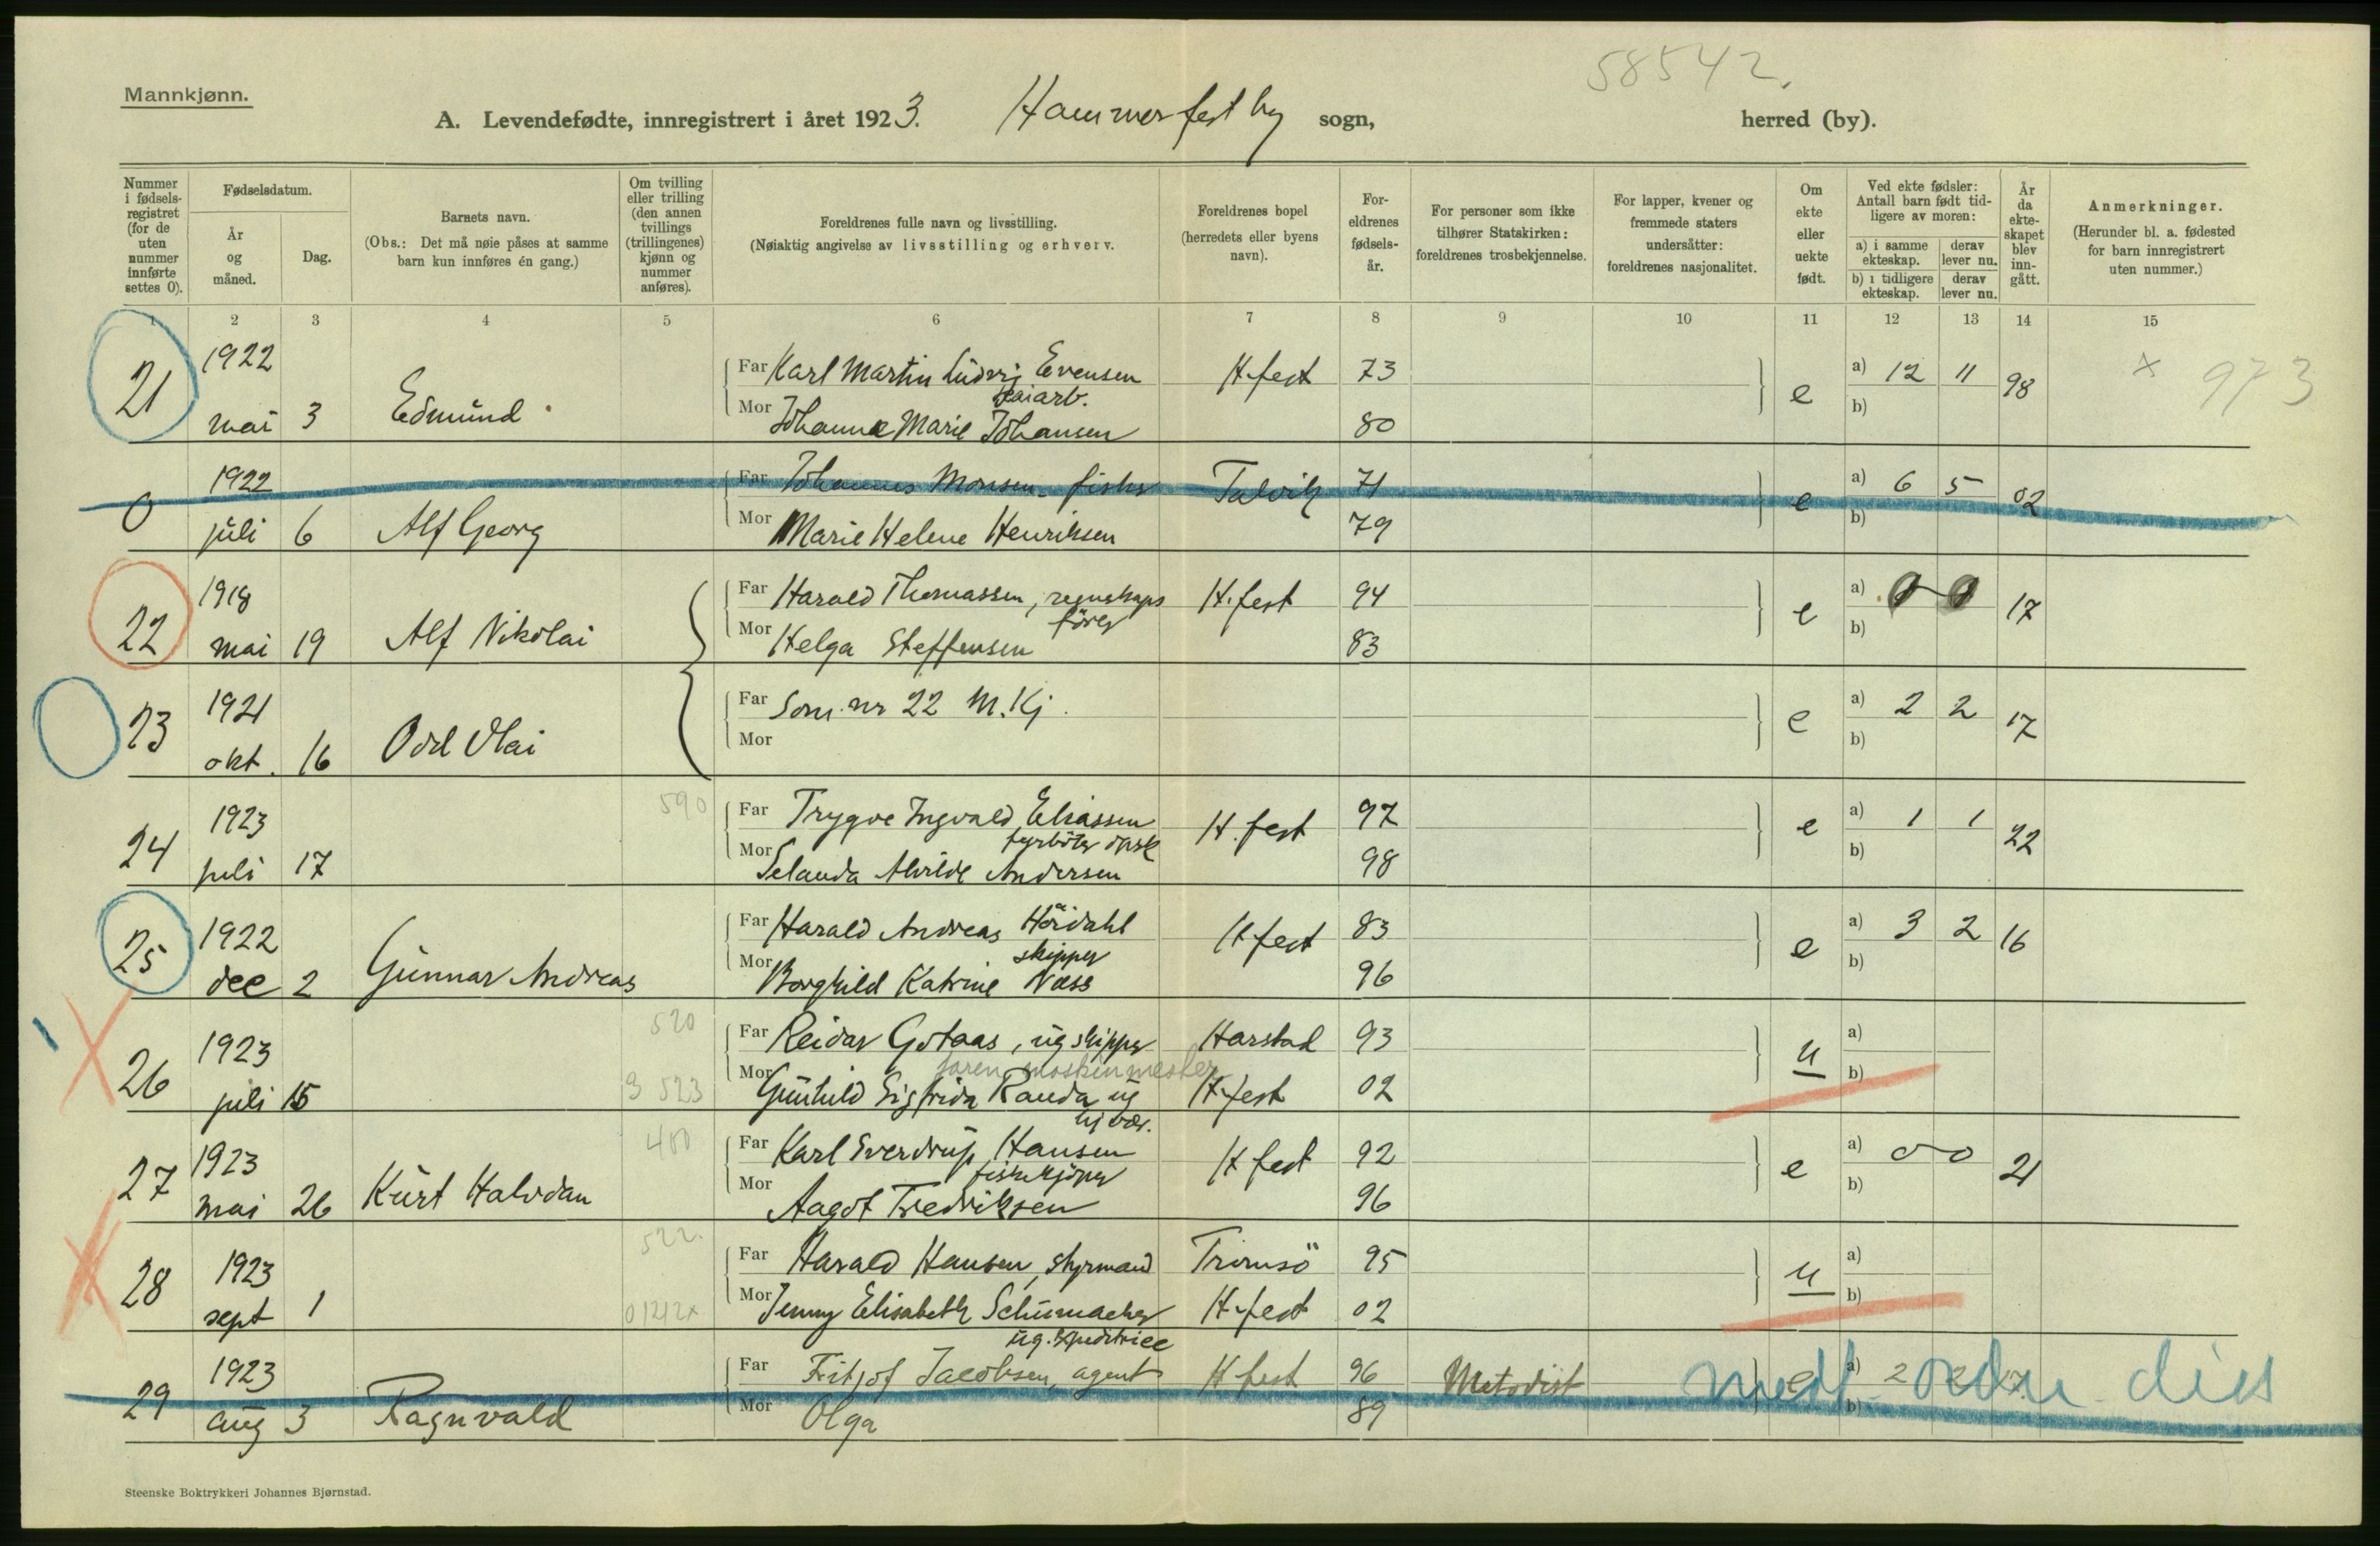 58542.
Mannkjønn.
A. Levendefødte, innregistrert i året 1923. Hammerfest by sogn, herred (by).
Nummer i fødsels-registret (for de uten nummer innførte settes 0).
Fødselsdatum.
År og måned.
Dag.
Barnets navn.
(Obs.: Det må nøie påses at samme barn kun innføres én gang.)
Om tvilling eller trilling (den annen tvillings (trillingenes) kjønn og nummer anføres).
Foreldrenes fulle navn og livsstilling.
(Nøiaktig angivelse av livsstilling og erhverv.
Foreldrenes bopel (herredets eller byens navn).
For-eldrenes fødsels-år.
For personer som ikke tilhører Statskirken: foreldrenes trosbekjennelse.
For lapper, kvener og fremmede staters undersåtter: foreldrenes nasjonalitet.
Om ekte eller uekte født.
Ved ekte fødsler: Antall barn født tid-ligere av moren:
a) i samme ekteskap. derav lever nu.
b) i tidligere ekteskap. derav lever nu.
År da ekte-skapet blev inn-gått.
Anmerkninger.
(Herunder bl. a. fødested for barn innregistrert uten nummer.)
1 2 3 4 5 6 7 8 9 10 11 12 13 14 15
21 1922 mai 3 Edmund
Far Karl Martin Ludvig Evensen H.fest 73 e a) 12 11 98 x 973
kaiarb.
Mor Johanna Marie Johansen 80 b)
0 1922 juli 6 Alf Georg
Far Johannes Monsen - fisker Talvik 71 e a) 6 5 02
Mor Marie Helene Henriksen 79 b)
22 1918 mai 19 Alf Nikolai
Far Harald Thomassen, regnskaps H.fest 94 e a) 0 0 17
fører
Mor Helga Steffensen 83 b)
23 1921 okt. 16 Odd Olai
Far Som nr 22 M.Kj. e a) 2 2 17
Mor b)
24 1923 juli 17 590
Far Trygve Ingvald Eliassen H.fest 97 e a) 1 1 22
fyrbøter
Mor Selanda Alvilde Andersen 98 b)
25 1922 dec 2 Gunnar Andreas
Far Harald Andreas Hördahl H.fest 83 e a) 3 2 16
skipper
Mor Borghild Katrine Næss 96 b)
26 1923 juli 15 520
Far Reidar Gotaas, ug skipper Harstad 93 u a)
faren maskinmester
3 523 Mor Gunhild Sigfrida Randa ug H.fest 02 b)
hj vær.
27 1923 mai 26 Kurt Halvdan 400
Far Karl Sverdrup Hansen H.fest 92 e a) 0 0 21
fiskekjöper
Mor Aagot Fredriksen 96 b)
28 1923 sept 1 522.
Far Harald Hansen, styrmand Tromsö 95 u a)
01212x Mor Jenny Elisabeth Schumacher H.fest 02 b)
ug. Expeditrice
29 1923 aug 3 Ragnvald
Far Fritjof Jacobsen, agent H.fest 96 Metodist a) 2
Mor Olga 89 b)
Steenske Boktrykkeri Johannes Bjørnstad.